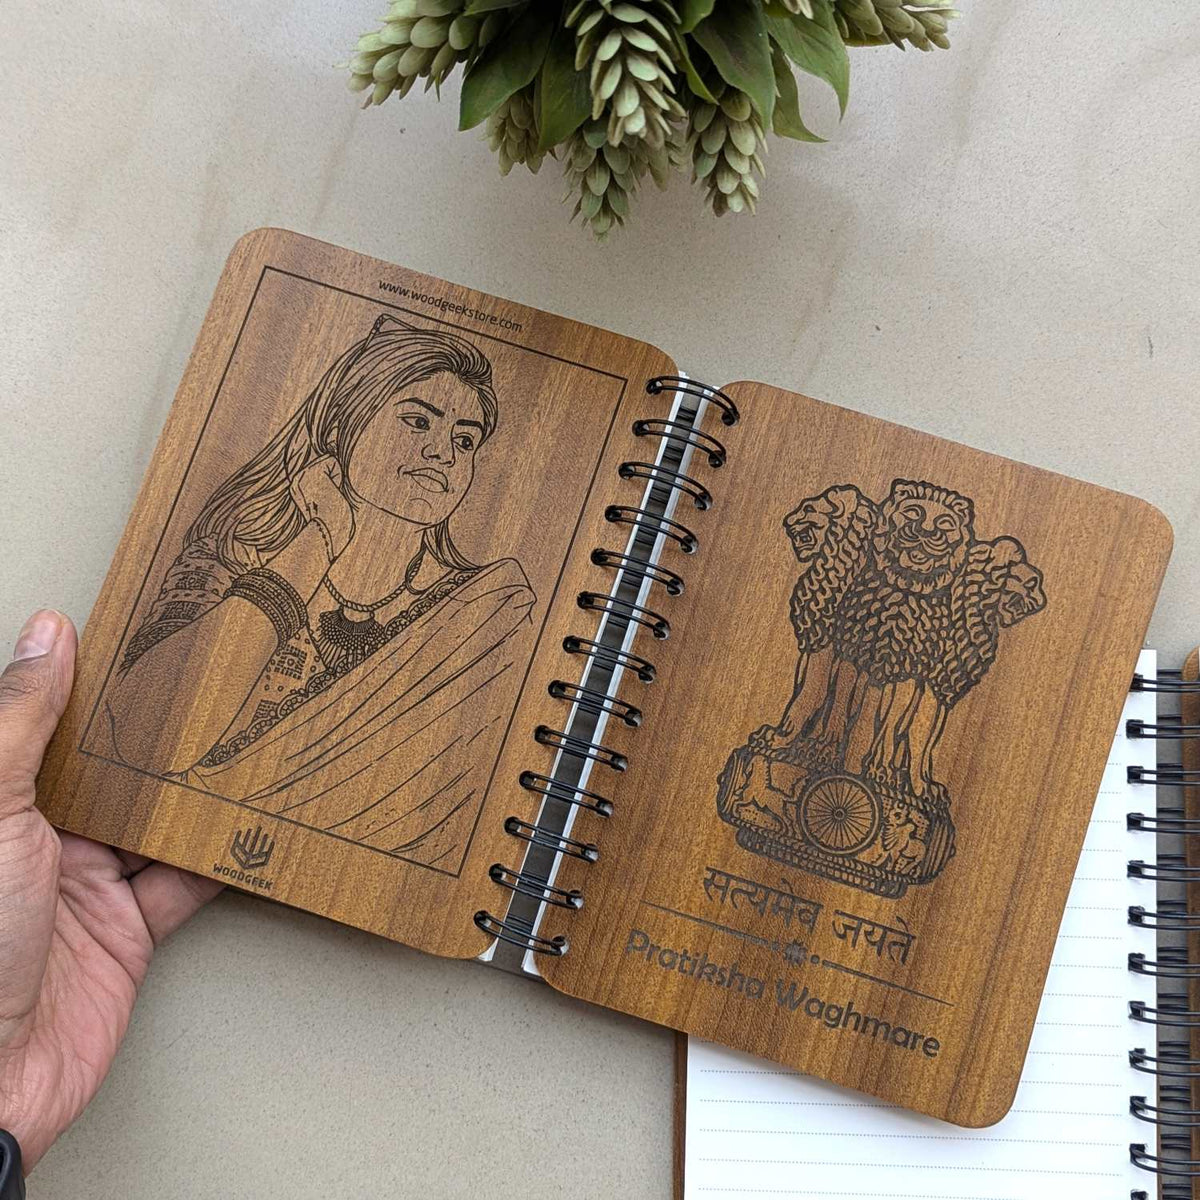 www.woodgeekstore.com
WOODGEEK
सत्यमेव जयते
Pratiksha Waghmare